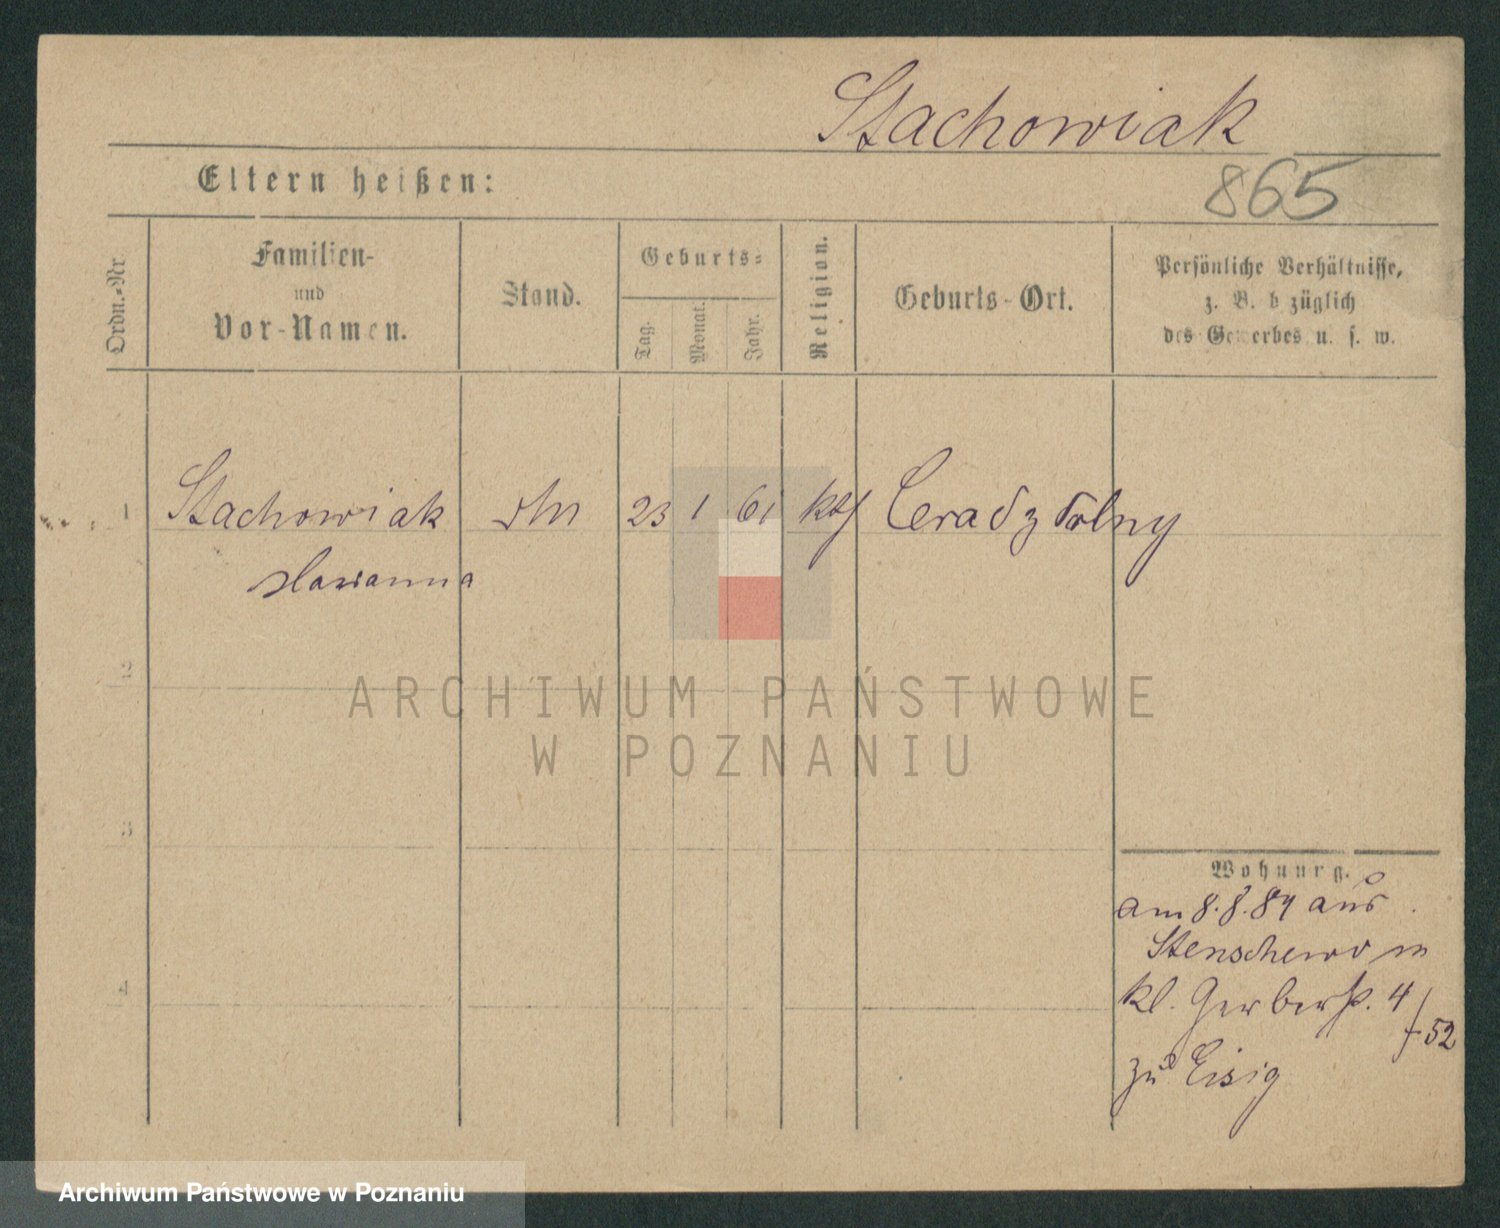 Stachowiak
865
Eltern heißen:
Ordn.-Nr
Familien-
und
Vor-Namen.
Stand.
Geburts-
Tag.
Monat.
Jahr.
Religion.
Geburts-Ort.
Persönliche Verhältnisse,
z. B. bezüglich
des Gewerbes u. s. w.
1 Stachowiak 23 1 61 kth Ceradz dolny
Marianna
2
ARCHIWUM PAŃSTWOWE
W POZNANIU
3
Wohnung.
am 8.8.84 aus
Stenschewo in
4
kl. Gerberst. 4
52
zu Eisig
Archiwum Państwowe w Poznaniu